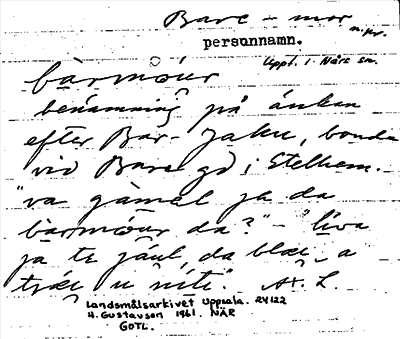 Bare-mor
n.kr.
personnamn.
Uppt. i När sn.
bàrmóur
benämning på änkan
efter Bar-Jaku, bonde
vid Bare gd i Stelhem.
"va gàmal ja da
bàrmóur da?" - "
ja te jául, da blæi a
trái u níti". H. L.
Landsmålsarkivet Uppsala. 24122
H. Gustavson 1961. NÄR
GOTL.